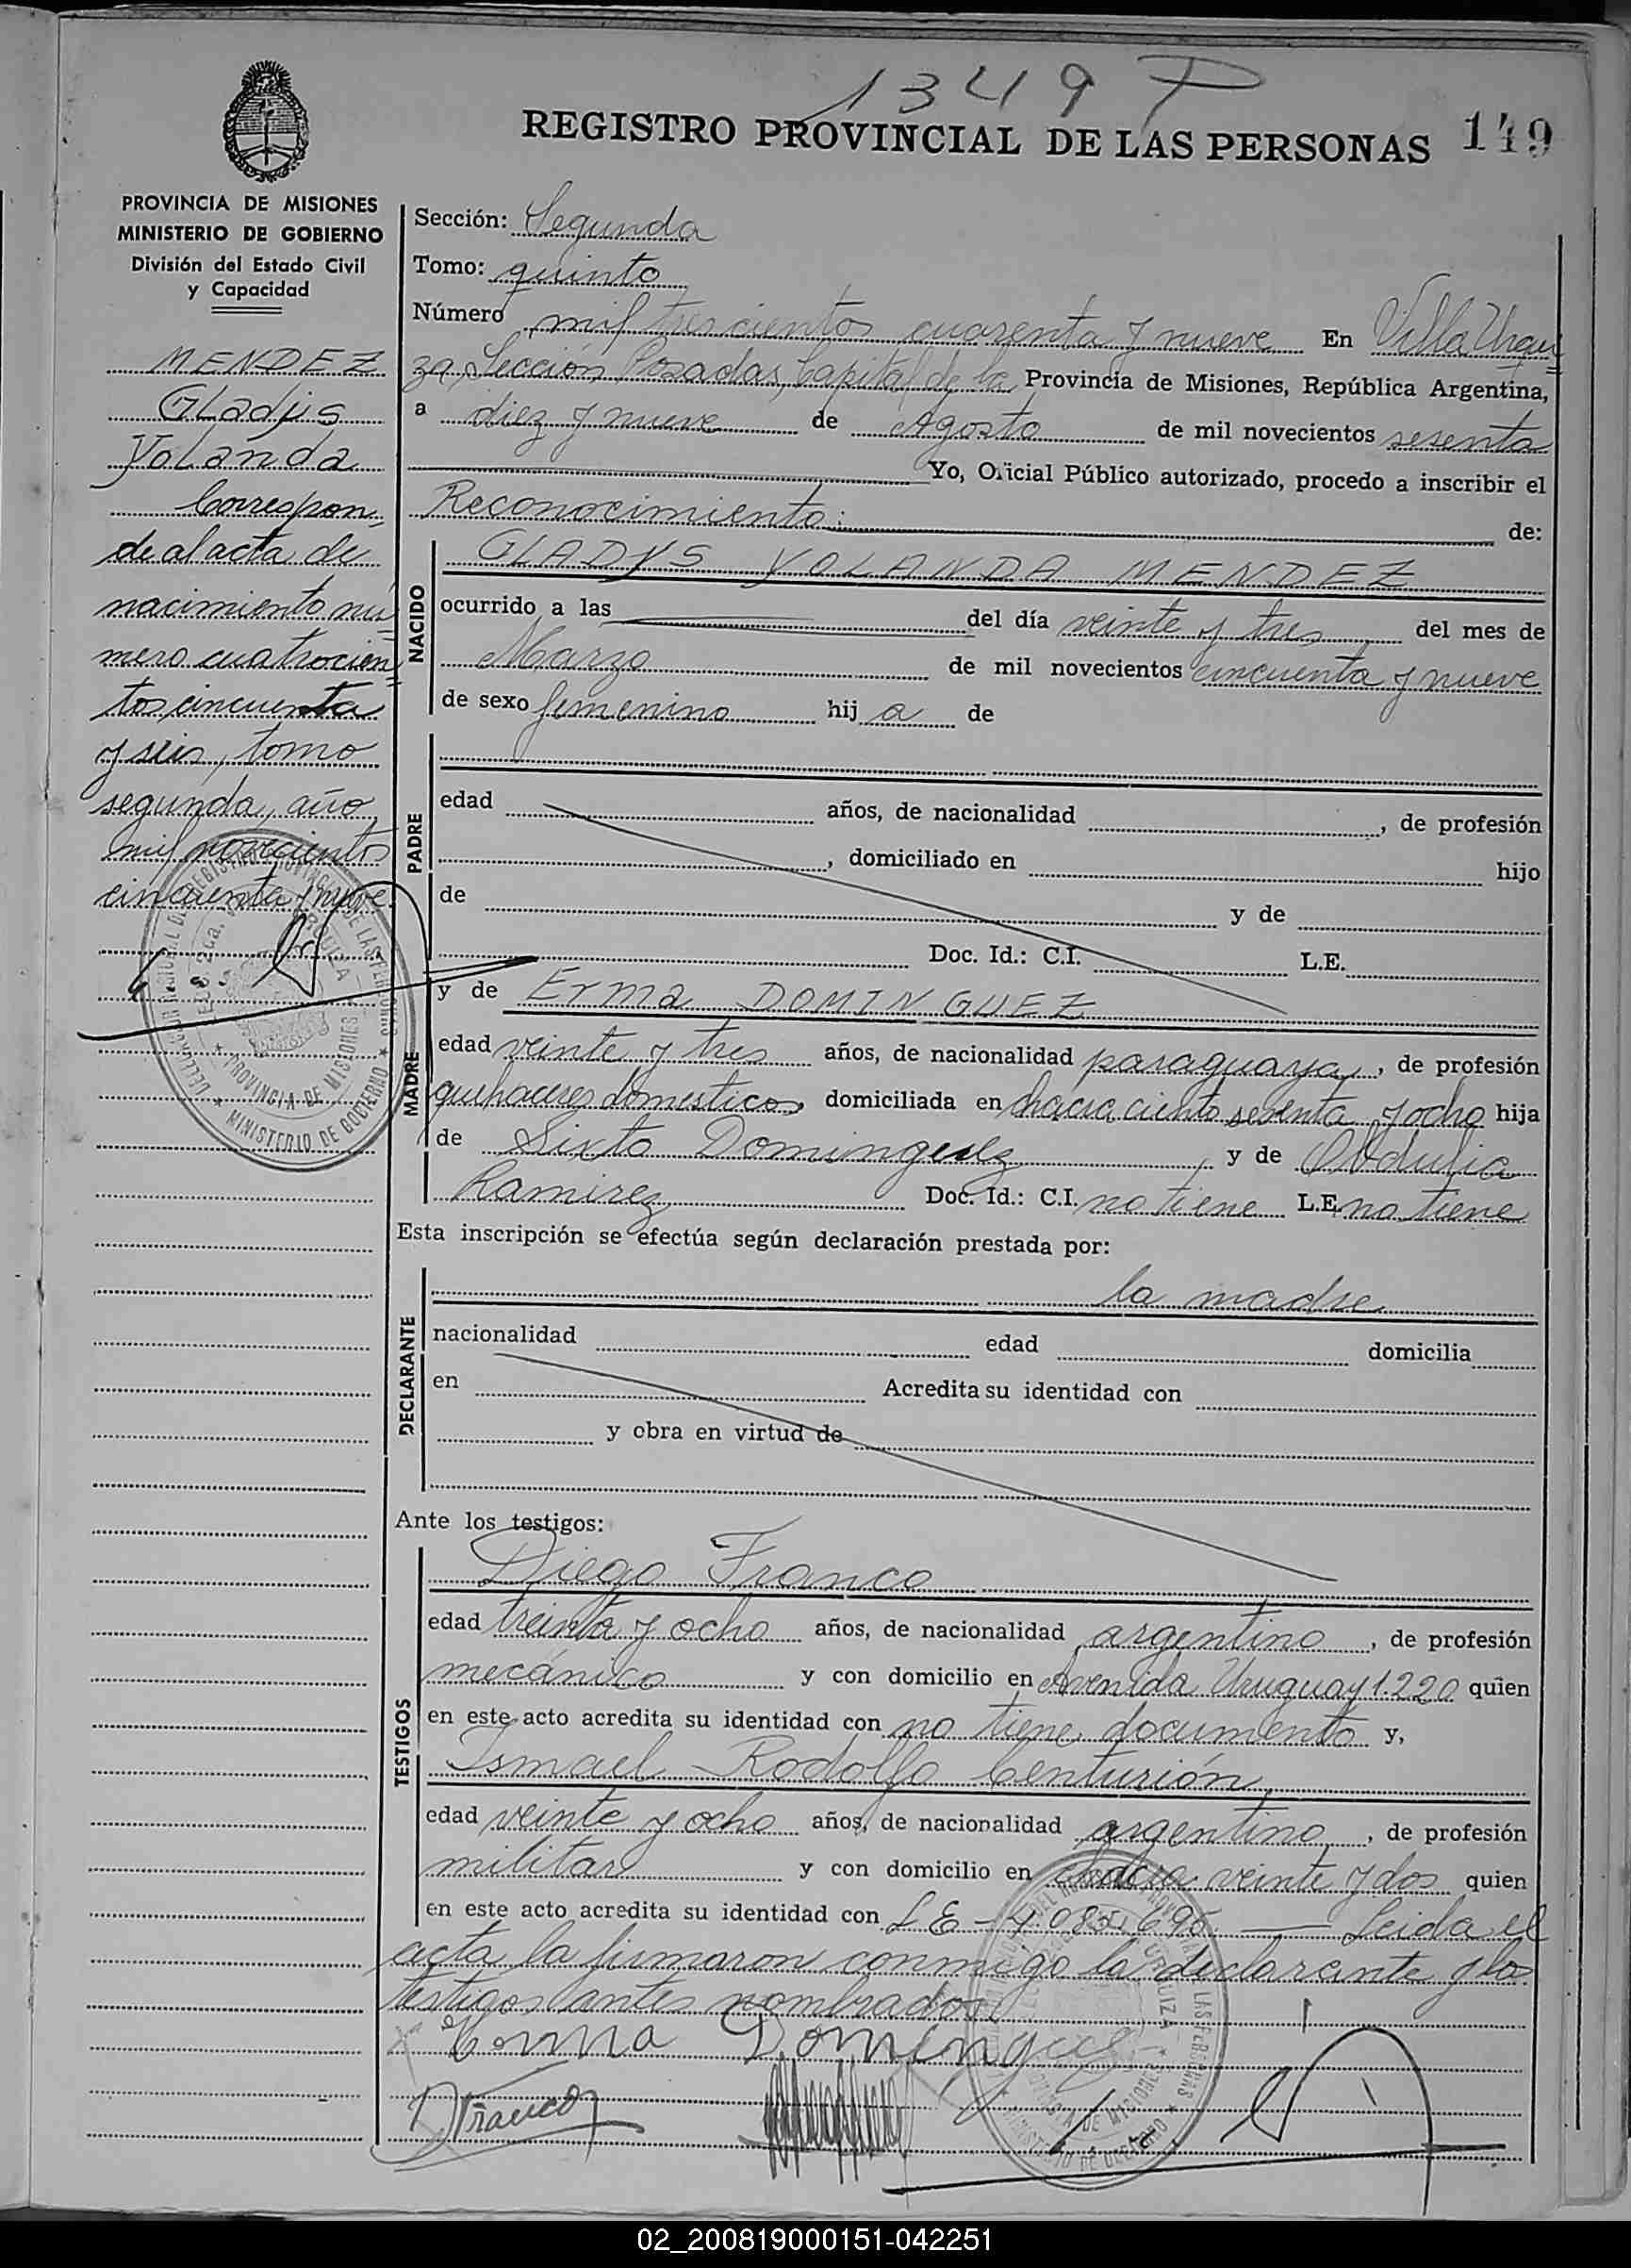 1349 P
REGISTRO PROVINCIAL DE LAS PERSONAS 149
PROVINCIA DE MISIONES
MINISTERIO DE GOBIERNO
División del Estado Civil
y Capacidad
MENDEZ
Gladys
Yolanda
Correspon
de al acta de
nacimiento nú
mero cuatrocien
tos cincuenta
y seis, tomo
segundo, año
mil novecientos
cincuenta y nueve.
Sección: Segunda
Tomo: quinto
Número mil trescientos cuarenta y nueve En Villa Urqui
za, Sección Posadas, Capital de la Provincia de Misiones, República Argentina,
a diez y nueve de Agosto de mil novecientos sesenta
Yo, Oficial Público autorizado, procedo a inscribir el
Reconocimiento: de:
NACIDO
GLADYS YOLANDA MENDEZ
ocurrido a las del día veinte y tres del mes de
Marzo de mil novecientos cincuenta y nueve
de sexo femenino hij a de
PADRE
edad años, de nacionalidad , de profesión
, domiciliado en hijo
de y de
Doc. Id.: C.I. L.E.
MADRE
y de Erma DOMINGUEZ
edad veinte y tres años, de nacionalidad paraguaya, de profesión
quehaceres domesticos, domiciliada en chacra ciento sesenta y ocho hija
de Sixto Dominguez y de Obdulia
Ramirez Doc. Id.: C.I. no tiene L.E. no tiene
Esta inscripción se efectúa según declaración prestada por:
DECLARANTE
la madre
nacionalidad edad domicilia
en Acredita su identidad con
y obra en virtud de
Ante los testigos:
TESTIGOS
Diego Franco
edad treinta y ocho años, de nacionalidad argentino, de profesión
mecánico y con domicilio en Avenida Uruguay 1.220 quien
en este acto acredita su identidad con no tiene documento y,
Ismael Rodolfo Centurión,
edad veinte y ocho años, de nacionalidad argentino, de profesión
militar y con domicilio en chacra veinte y dos quien
en este acto acredita su identidad con L E - Leida el
acta la firmaron conmigo la declarante y los
testigos antes nombrados
Erma Dominguez
D Franco
PROVINCIA DE MISIONES
MINISTERIO DE GOBIERNO
02_200819000151-042251